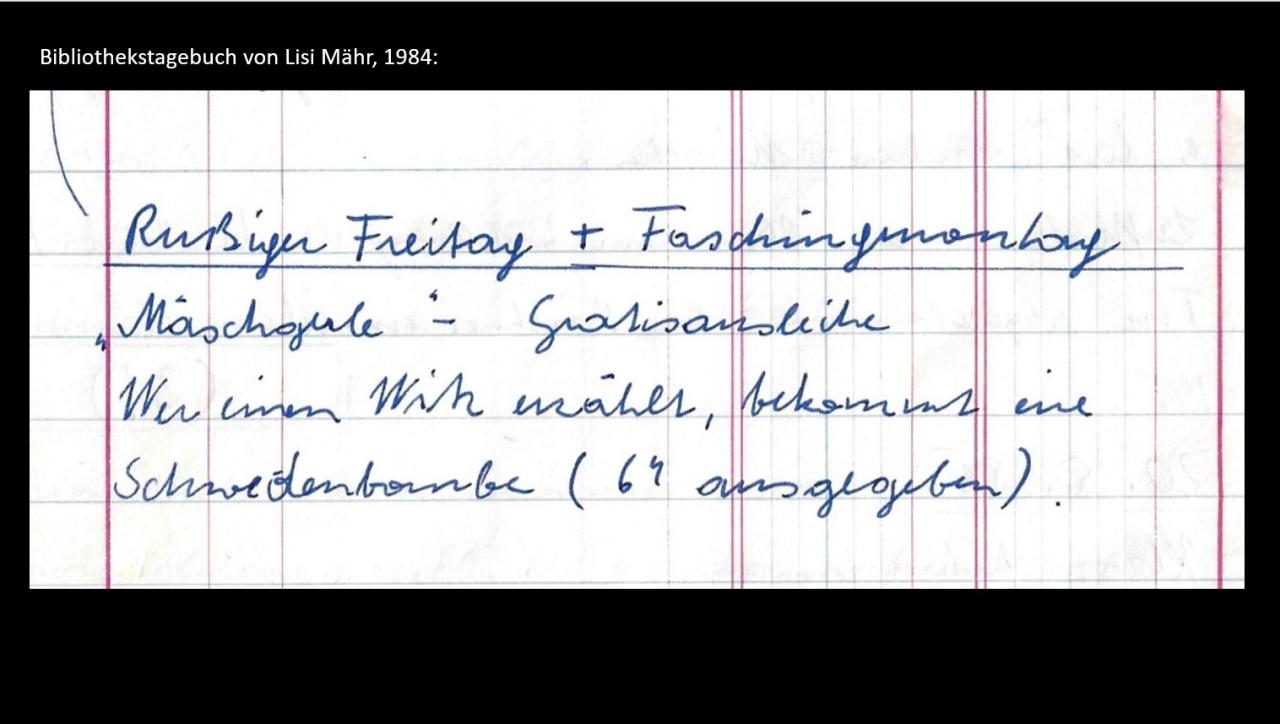 Bibliothekstagebuch von Lisi Mähr, 1984:
Rußiger Freitag + Faschingmontag
„Mäschgerle" – Gratisausleihe
Wer einen Witz erzählt, bekommt eine
Schwedenbombe (64 ausgegeben).